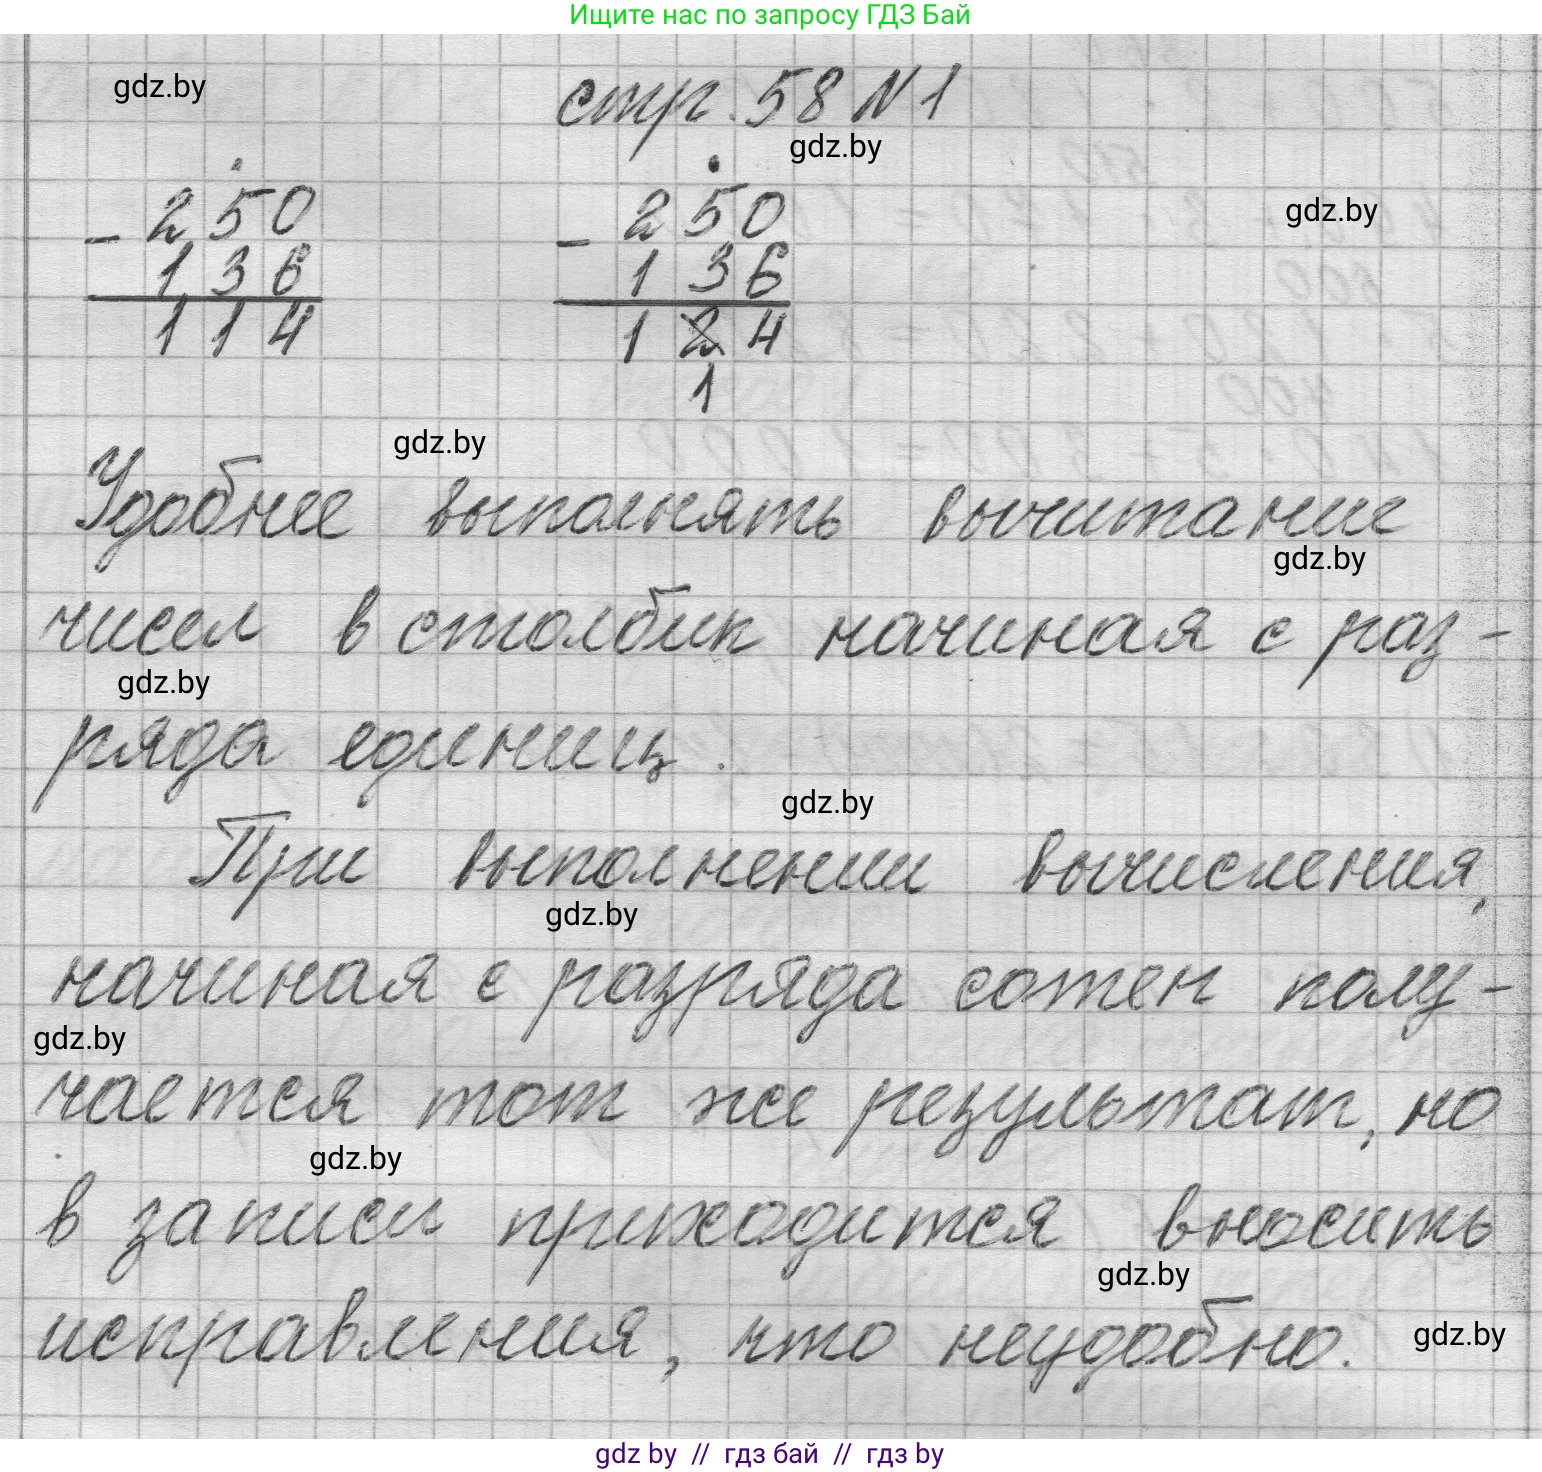 Ищите нас по запросу ГДЗ Бай
gdz.by
стр. 58 N 1
gdz.by
gdz.by
- 250
136
114
- 250
136
124
1
gdz.by
Удобнее выполнять вычитание
gdz.by
чисел в столбик начиная с раз-
gdz.by
ряда единиц.
gdz.by
При выполнении вычисления,
gdz.by
начиная с разряда сотен полу-
gdz.by
чается тот же результат, но
gdz.by
в записи приходится вносить
gdz.by
исправления, что неудобно.
gdz.by
gdz by // гдз бай // гдз by